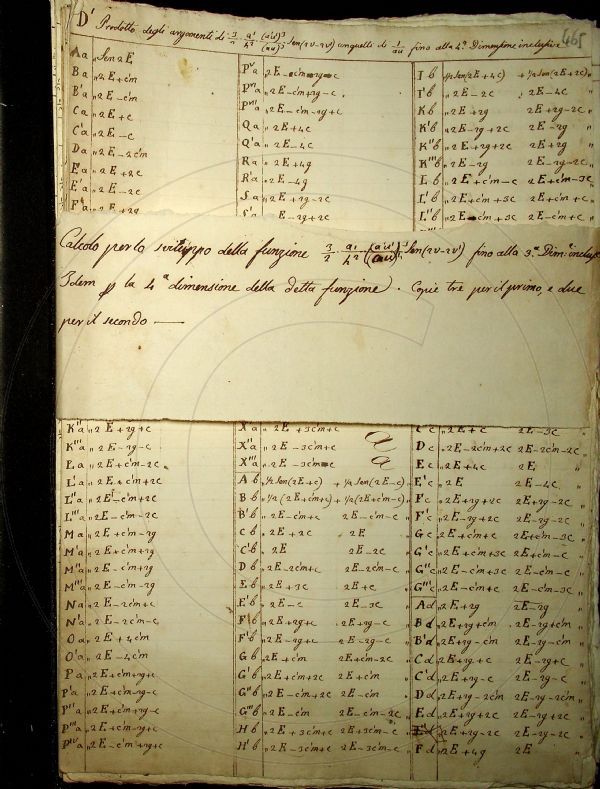 465
D' Prodotto degli argomenti di 3/2 a'/h² (a'u')³/(au)³ sen(2v-2v') in quelli di 1/au fino alla 4.ª Dimensione inclusive
Aa „ Sen 2E
Ba „ 2E+c'm
B'a „ 2E-c'm
Ca „ 2E+c
C'a „ 2E-c
Da „ 2E-2c'm
Ea „ 2E+2c
E'a „ 2E-2c
Fa „ 2E+2g
Pᵛa „ 2E-c'm-2g-c
Qa „ 2E+4c
Q'a „ 2E-4c
Ra „ 2E+4g
R'a „ 2E-4g
Sa „ 2E+2g-2c
S'a „ 2E-2g+2c
Ib ½Sen(2E+4c) +½Sen(2E+2c) „
I'b „ 2E-2c 2E-4c „
Kb „ 2E+2g 2E+2g-2c „
K'b „ 2E-2g+2c 2E-2g „
K''b „ 2E+2g+2c 2E+2g „
K'''b „ 2E-2g 2E-2g-2c „
Lb „ 2E+c'm-c 2E+c'm-3c „
L'b „ 2E+c'm+3c 2E+c'm+c „
L''b „ 2E-c'm+3c 2E-c'm+c „
Calcolo per lo sviluppo della funzione 3/2 a'/h² (a'u')³/(au)³ sen(2v-2v') fino alla 3.ª Dim.e inclus.
Idem p la 4ª dimensione della detta funzione. Copie tre per il primo, e due
per il secondo —
K''a „ 2E+2g+c
K'''a „ 2E-2g-c
La „ 2E+c'm-2c
L'a „ 2E+c'm+2c
L''a „ 2E-c'm+2c
L'''a „ 2E-c'm-2c
Ma „ 2E+c'm-2g
M'a „ 2E+c'm+2g
M''a „ 2E-c'm+2g
M'''a „ 2E-c'm-2g
Na „ 2E-2c'm+c
N'a „ 2E-2c'm-c
Oa „ 2E+4c'm
O'a „ 2E-4c'm
Pa „ 2E+c'm+2g+c
P'a „ 2E+c'm-2g-c
P''a „ 2E+c'm+2g-c
P'''a „ 2E+c'm-2g+c
Pᴵⱽa „ 2E-c'm+2g+c
X'a „ 2E+3c'm+c
X''a „ 2E-3c'm+c
X'''a „ 2E-3c'm-c
Ab ½Sen(2E+c) +½Sen(2E-c) „
Bb ½(2E+c'm+c) +½(2E+c'm-c) „
B'b „ 2E-c'm+c 2E-c'm-c „
Cb „ 2E+2c 2E „
C'b „ 2E 2E-2c „
Db „ 2E-2c'm+c 2E-2c'm-c „
Eb „ 2E+3c 2E+c „
E'b „ 2E-c 2E-3c „
Fb „ 2E+2g+c 2E+2g-c „
F'b „ 2E-2g+c 2E-2g-c „
Gb „ 2E+c'm 2E+c'm-2c „
G'b „ 2E+c'm+2c 2E+c'm „
G''b „ 2E-c'm+2c 2E-c'm „
G'''b „ 2E-c'm 2E-c'm-2c „
Hb „ 2E+3c'm+c 2E+3c'm-c „
H'b „ 2E-3c'm+c 2E-3c'm-c „
a
a
C'c „ 2E+c 2E-3c „
Dc „ 2E-2c'm+2c 2E-2c'm-2c „
Ec „ 2E+4c 2E „
E'c „ 2E 2E-4c „
Fc „ 2E+2g+2c 2E+2g-2c „
F'c „ 2E-2g+2c 2E-2g-2c „
Gc „ 2E+c'm+c 2E+c'm-3c „
G'c „ 2E+c'm+3c 2E+c'm-c „
G''c „ 2E-c'm+3c 2E-c'm-c „
G'''c „ 2E-c'm+c 2E-c'm-3c „
Ad „ 2E+2g 2E-2g „
Bd „ 2E+2g+c'm 2E-2g+c'm „
B'd „ 2E+2g-c'm 2E-2g-c'm „
Cd „ 2E+2g+c 2E-2g+c „
C'd „ 2E+2g-c 2E-2g-c „
Dd „ 2E+2g-2c'm 2E-2g-2c'm „
Ed „ 2E+2g+2c 2E-2g+2c „
E'd „ 2E+2g-2c 2E-2g-2c „
Fd „ 2E+4g 2E „